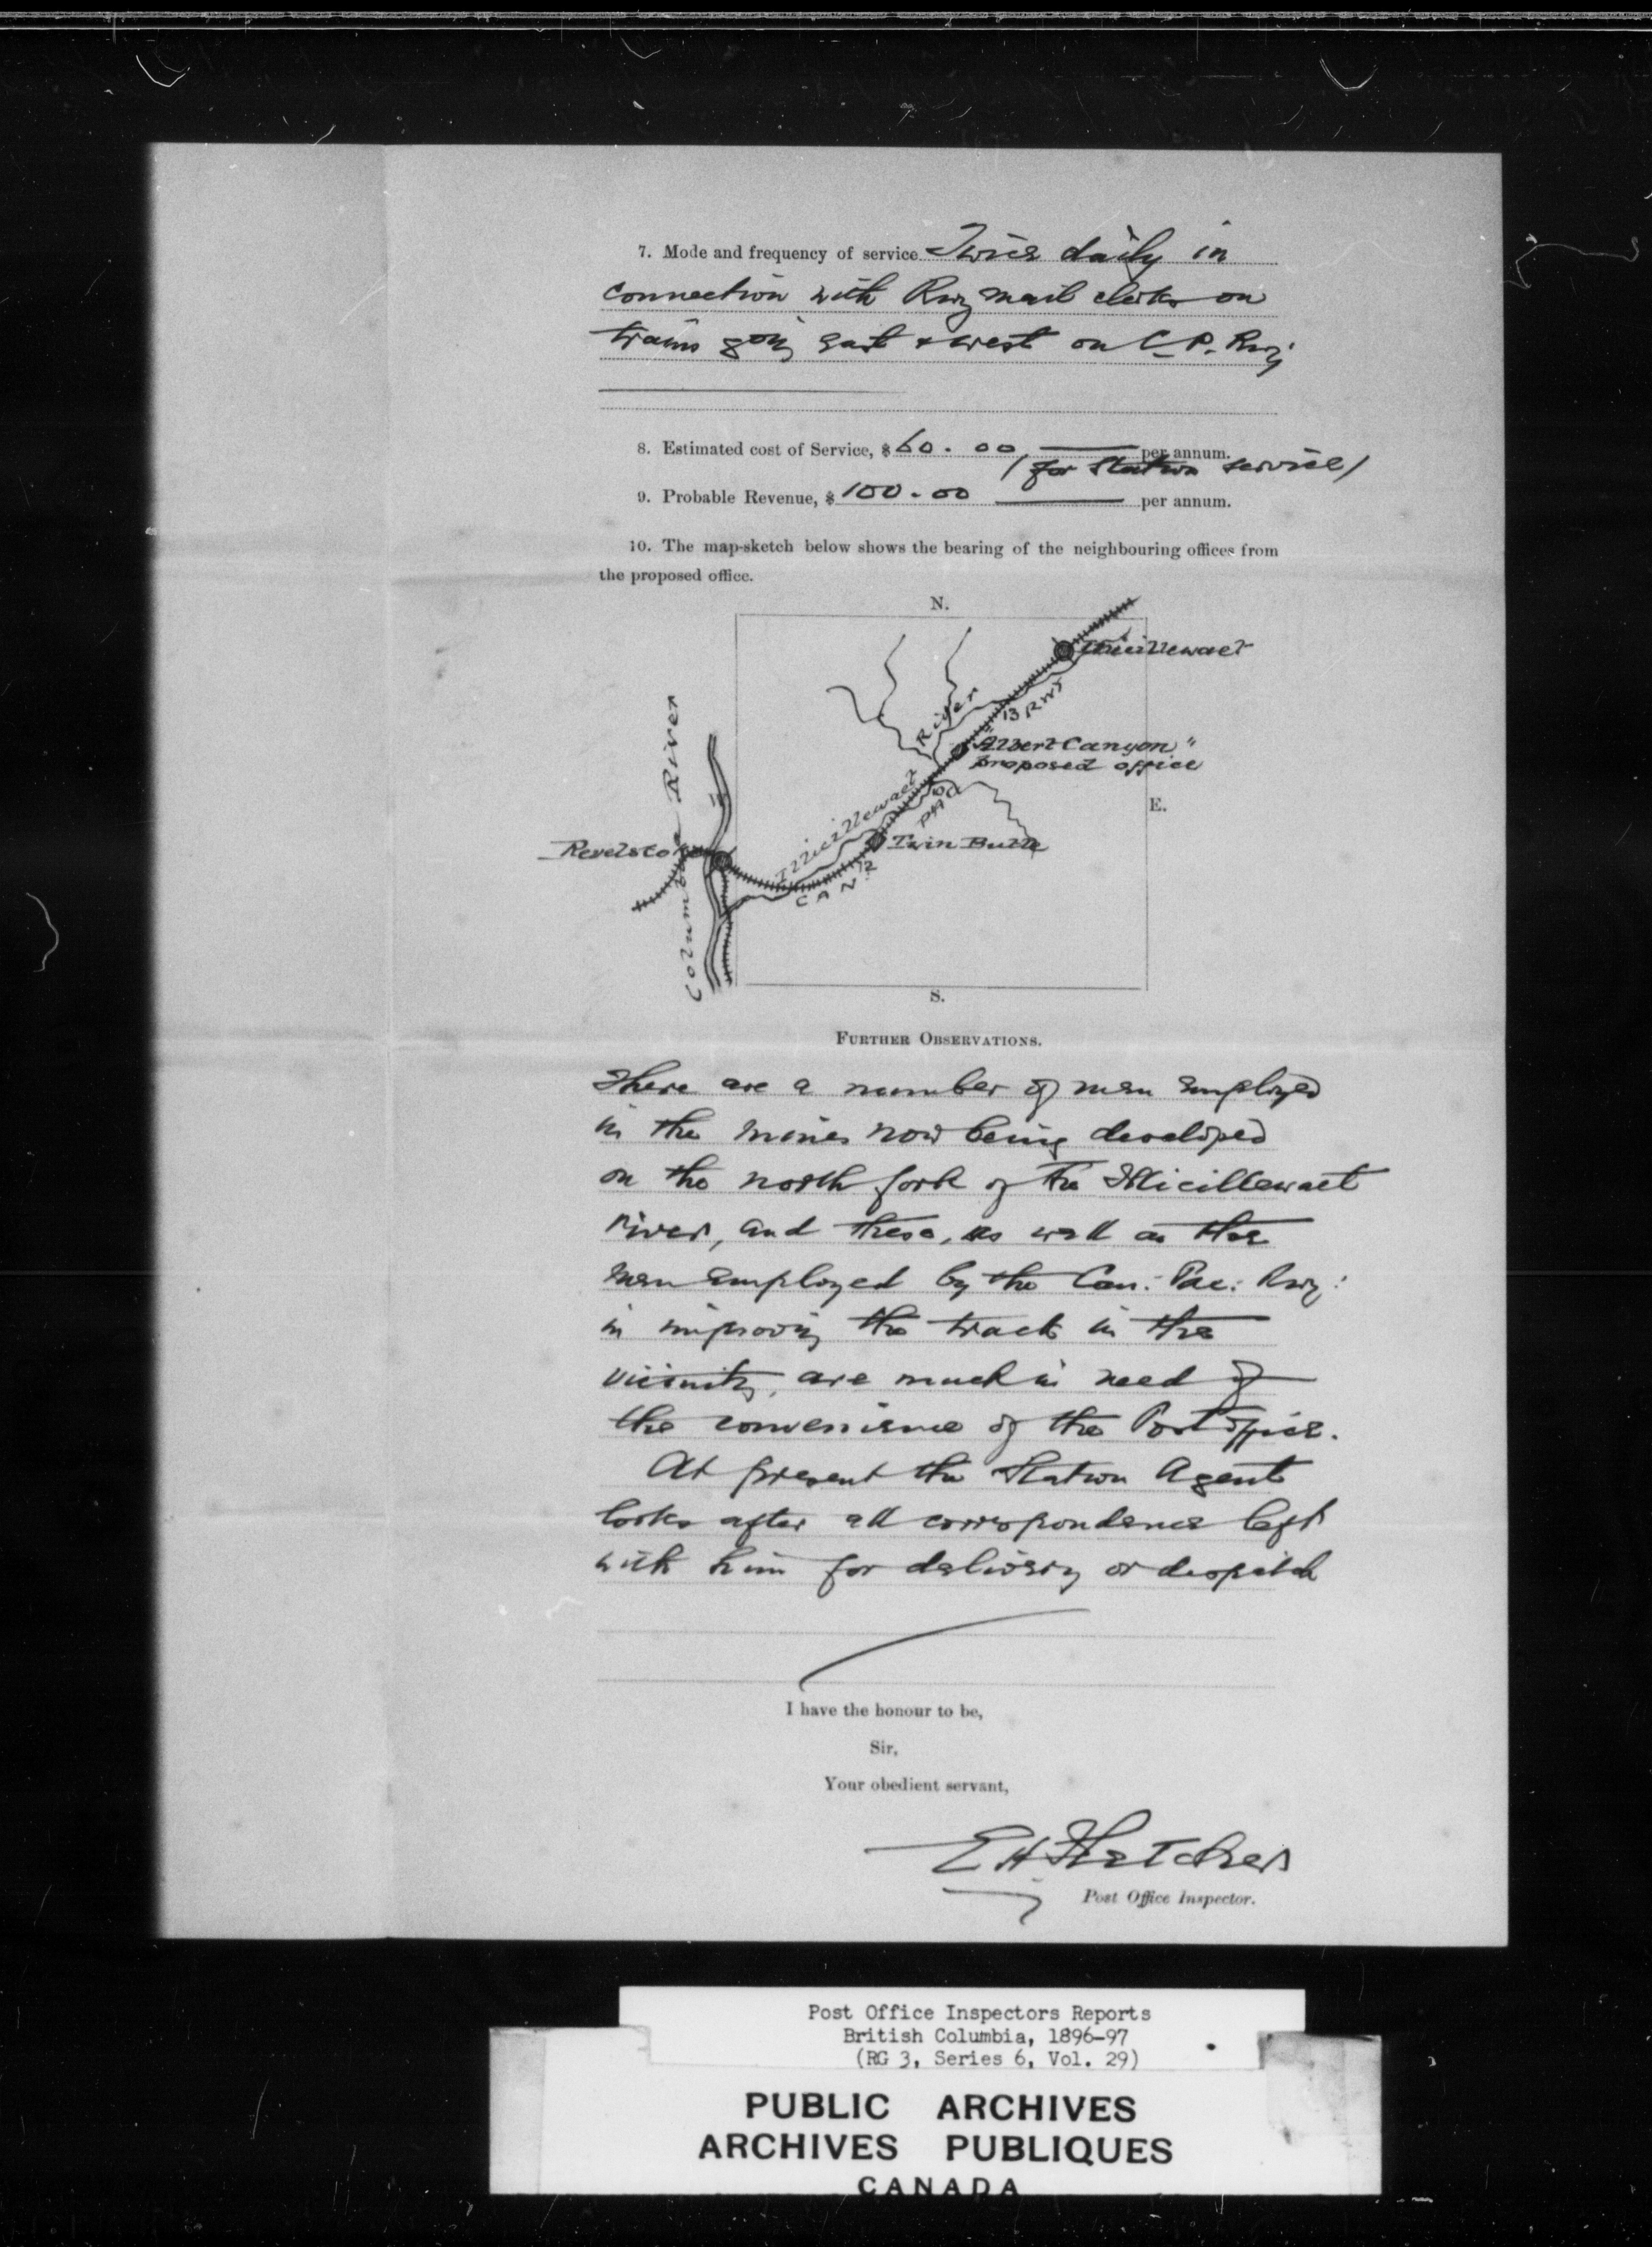 7. Mode and frequency of service Twice daily in
connection with Rwy mail clerks on
trains going east & west on C.P. Rwy
8. Estimated cost of Service, $ 60.00 per annum.
(for Station service)
9. Probable Revenue, $ 100.00 per annum.
10. The map-sketch below shows the bearing of the neighbouring offices from
the proposed office.
N.
Illicillewaet
13
RWY
River
"Albert Canyon"
proposed office
E.
Illicillewaet
PAC
Columbia River
Revelstoke
Twin Butte
12
CAN
S.
FURTHER OBSERVATIONS.
There are a number of men employed
in the mines now being developed
on the north fork of the Illicillewaet
River, and these, as well as the
men employed by the Can: Pac: Rwy:
in improving the track in the
vicinity, are much in need of
the convenience of the Post office.
At present the Station Agent
looks after all correspondence left
with him for delivery or despatch
I have the honour to be,
Sir,
Your obedient servant,
EHFletcher
Post Office Inspector.
Post Office Inspectors Reports
British Columbia, 1896-97
(RG 3, Series 6, Vol. 29)
PUBLIC ARCHIVES
ARCHIVES PUBLIQUES
CANADA